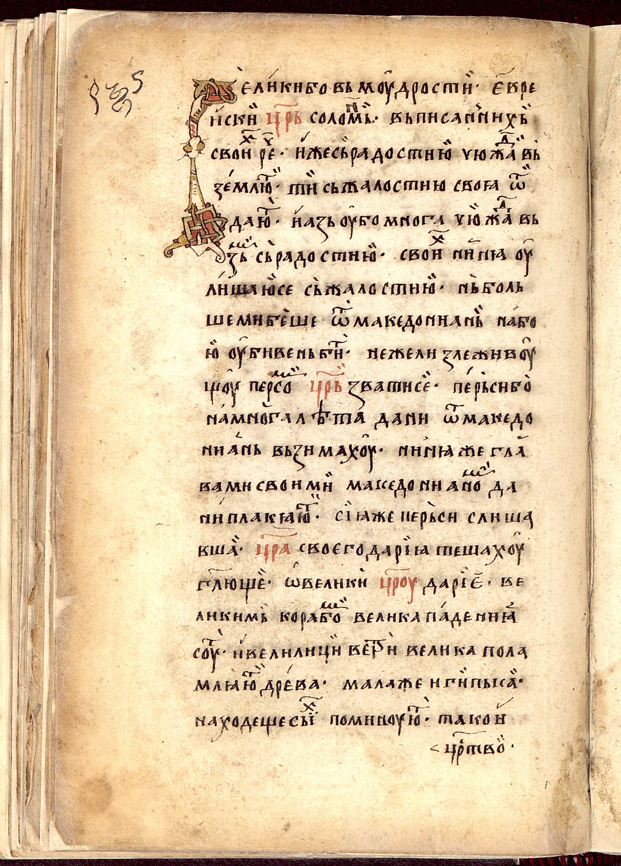 еликибо въ моудрости · еѵре
искїи црь соломⷩ҇ъ · въ писанⷩыхъ
своиⷯ реⷱ҇ · иже съ радостию чюжаⷣ въ
землю · ти съ жалостию своꙗ ѿ
даюⷮ · и азъ оубо многа чюжаⷣ въ
зъ съ радостию · своиⷯ нинꙗ оу
лишаюсе съ жалостию · нь боль
ше ми беше ѿ македониань на бо
ю оубивень бити · нежели зле живоу
щоу персоⷨ црь зватисе · перьси бо
на многа лѣта дани ѿ македо
ниань възимахоу · нинꙗ же гла
вами своими македонианоⷨ да
ни плакꙗюⷮ · сиꙗ же перьси слиша
вша · цра своего дариꙗ тешахоу
глюще · ѡ велики цроу дарїе · ве
ликимь корабоⷨ велика паденїꙗ
соуⷮ · и велиїци вѣтри велика пола
млꙗюⷮ древа · мала же и гипьса ·
находещесїиⷯ поминоуюⷮ · тако и
црⷭ҇тво ·